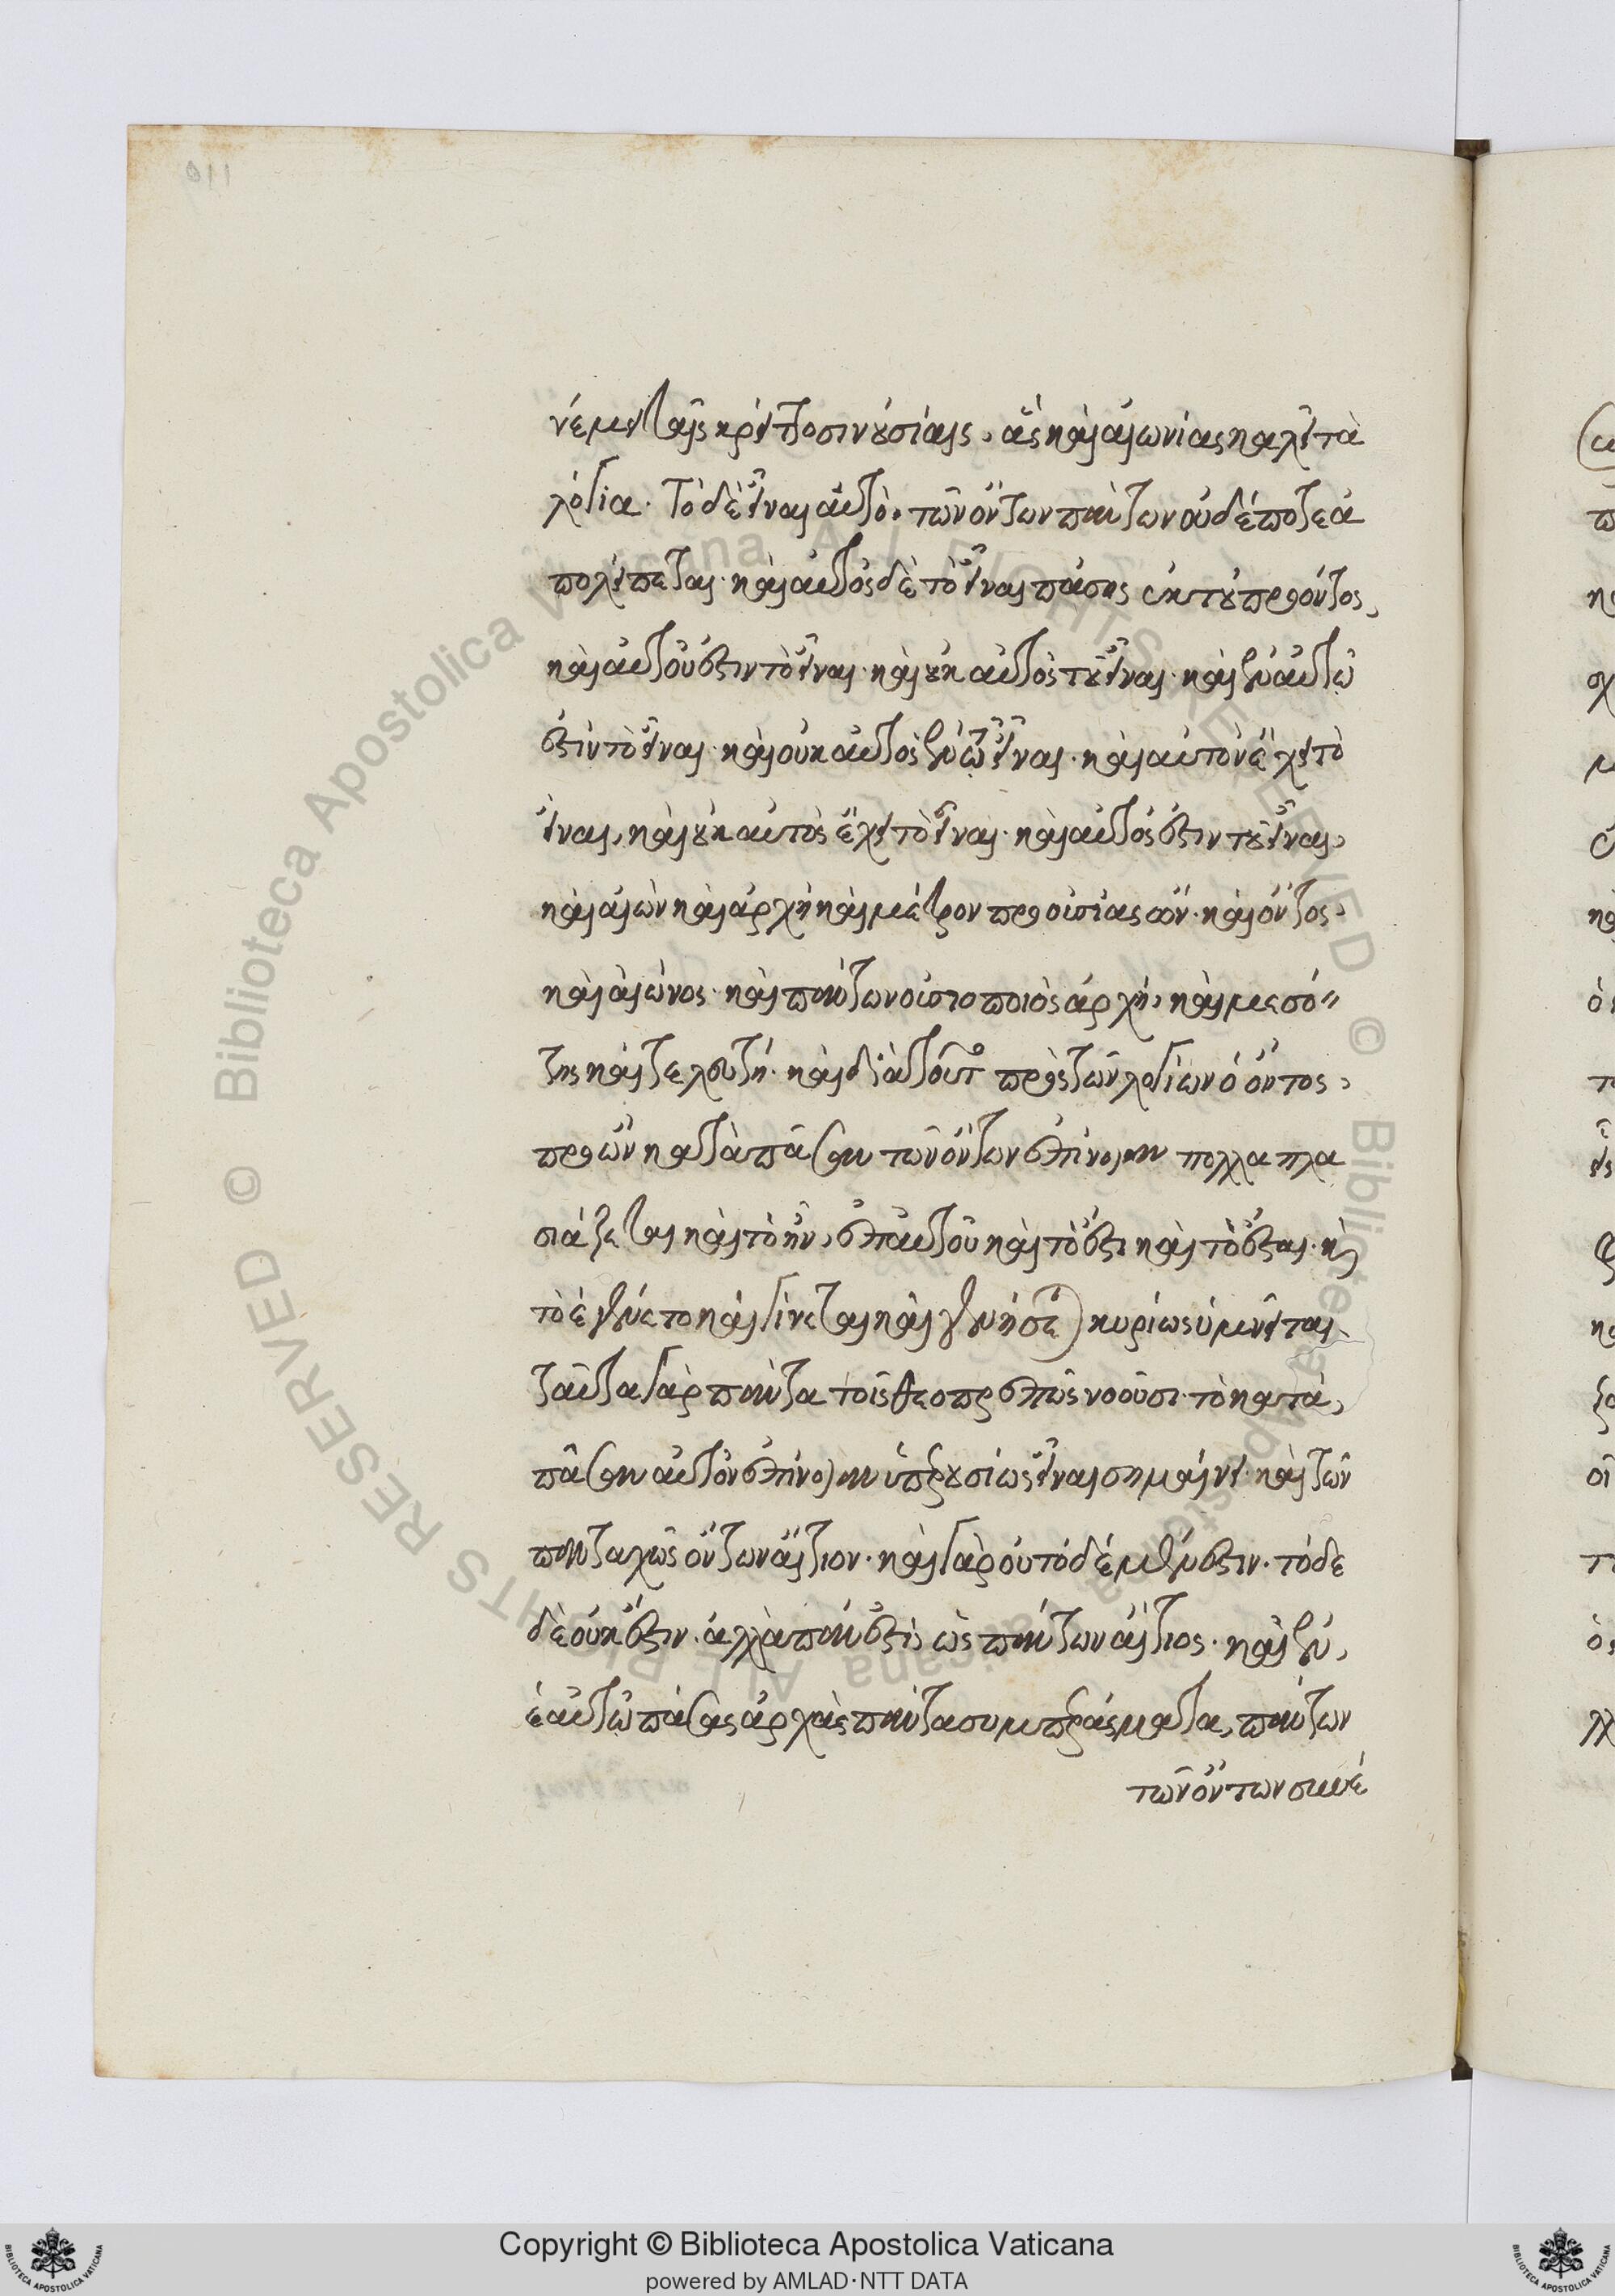 νέμει ταῖς κρείττοσιν οὐσίαις, ἃς καὶ αἰωνίας καλεῖ τὰ
λόγια. Τὸ δὲ εἶναι αὐτὸ· τῶν ὄντων πάντων οὐδέποτε ἀ
πολείπεται· καὶ αὐτὸς δὲ τὸ εἶναι πάσης ἐκ τοῦ προόντος,
καὶ αὐτοῦ ἐστιν τὸ εἶναι· καὶ οὐκ αὐτὸς τοῦ εἶναι· καὶ ἐν αὐτῶ
ἐστὶν τὸ εἶναι· καὶ οὐκ αὐτὸς ἐν τῶ εἶναι· καὶ αὐτὸν ἔχει τὸ
εἶναι, καὶ οὐκ αὐτὸς ἔχει τὸ εἶναι· καὶ αὐτός ἐστιν τοῦ εἶναι,
καὶ αἰὼν καὶ ἀρχὴ καὶ μέτρον προουσίας ὢν· καὶ ὄντος,
καὶ αἰῶνος· καὶ πάντων οὐσιοποιὸς ἀρχὴ, καὶ μεσό-
της καὶ τελευτή· καὶ διὰ τοῦτο πρὸς τῶν λογίων ὁ ὄντος,
προὼν κατὰ πᾶσαν τῶν ὄντων ἐπίνοιαν πολλαπλα
σιάζεται καὶ τὸ ἦν, ἐπ' αὐτοῦ καὶ τὸ ἔστι καὶ τὸ ἔσται· κ(αὶ)
τὸ ἐγένετο καὶ γίνεται καὶ γενήσεται κυρίως ὑμνεῖται,
ταῦτα γὰρ πάντα τοῖς θεοπρεπῶς νοοῦσι· τὸ κατὰ,
πᾶσαν αὐτὸν ἐπίνοιαν ὑπερουσίως εἶναι σημαίνει· καὶ τῶν
πανταχῶς ὄντων αἴτιον· καὶ γὰρ οὐ τόδε μέν ἐστιν· τόδε
δὲ οὐκ ἔστιν· ἀλλὰ πάν ἐστι, ὡς πάντων αἴτιος· καὶ ἐν,
ἑαυτῶ πάσας ἀρχὰς πάντα συμπεράσματα, πάντων
τῶν ὄντων συνέ